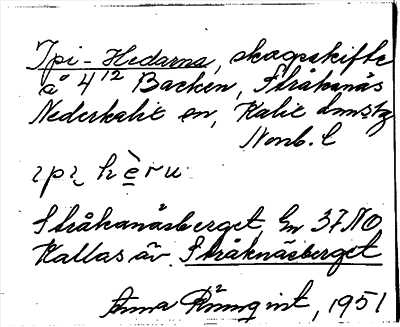 Ypi-Hedarna, skogsskifte
å 4¹² Backen, Stråkanäs
Nederkalix sn, Kalix dmstg
Nonb. l
ɿpɿ hèru
Stråkanäsberget, Gn 37 NO
Kallas äv. Stråknäsberget
Anna Rönnqvist, 1951